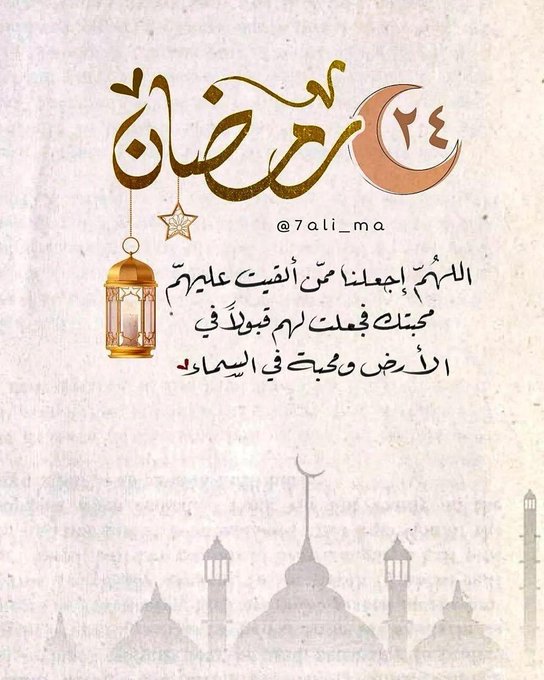 ٢٤ رمضان
@7ali_ma
اللهُمّ إجعلنا ممّن ألقيت عليهمّ
محبتك فجعلت لهم قبولاً في
الأرض ومحبة في السّماء